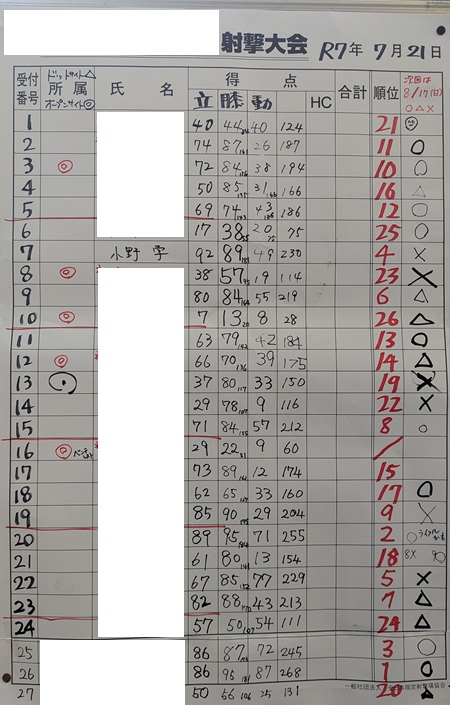 射撃大会 R7年 7月21日
受付番号 ドットサイト△ 所属 オープンサイト◎ 氏 名 得 点 立 膝 動 HC 合計 順位 次回は 8/17(日) ○△×
1 40 44 40 124 21
2 74 87 26 187 11 ○
3 ◎ 72 84 38 194 10 ○
4 50 85 31 166 16 △
5 69 74 43 186 12 ○
6 17 38 20 75 25 ○
7 小野 学 92 89 49 230 4 ×
8 ◎ 38 57 19 114 23 ×
9 80 84 55 219 6 △
10 ◎ 7 13 8 28 26 △
11 63 79 42 184 13 ○
12 ◎ 66 70 39 175 14 △
13 37 80 33 150 19 ×
14 29 78 9 116 22 ×
15 71 84 57 212 8 ○
16 ◎ 29 22 9 60 /
17 73 89 12 174 15
18 62 65 33 160 17 ○
19 85 90 29 204 9 ×
20 89 95 71 255 2 ○
21 61 80 13 154 18 8× 9○
22 67 85 77 229 5 ×
23 82 88 43 213 7 △
24 57 50 54 111 24 △
25 86 87 72 245 3 ○
26 86 95 87 268 1 ○
27 50 56 25 131 20 △